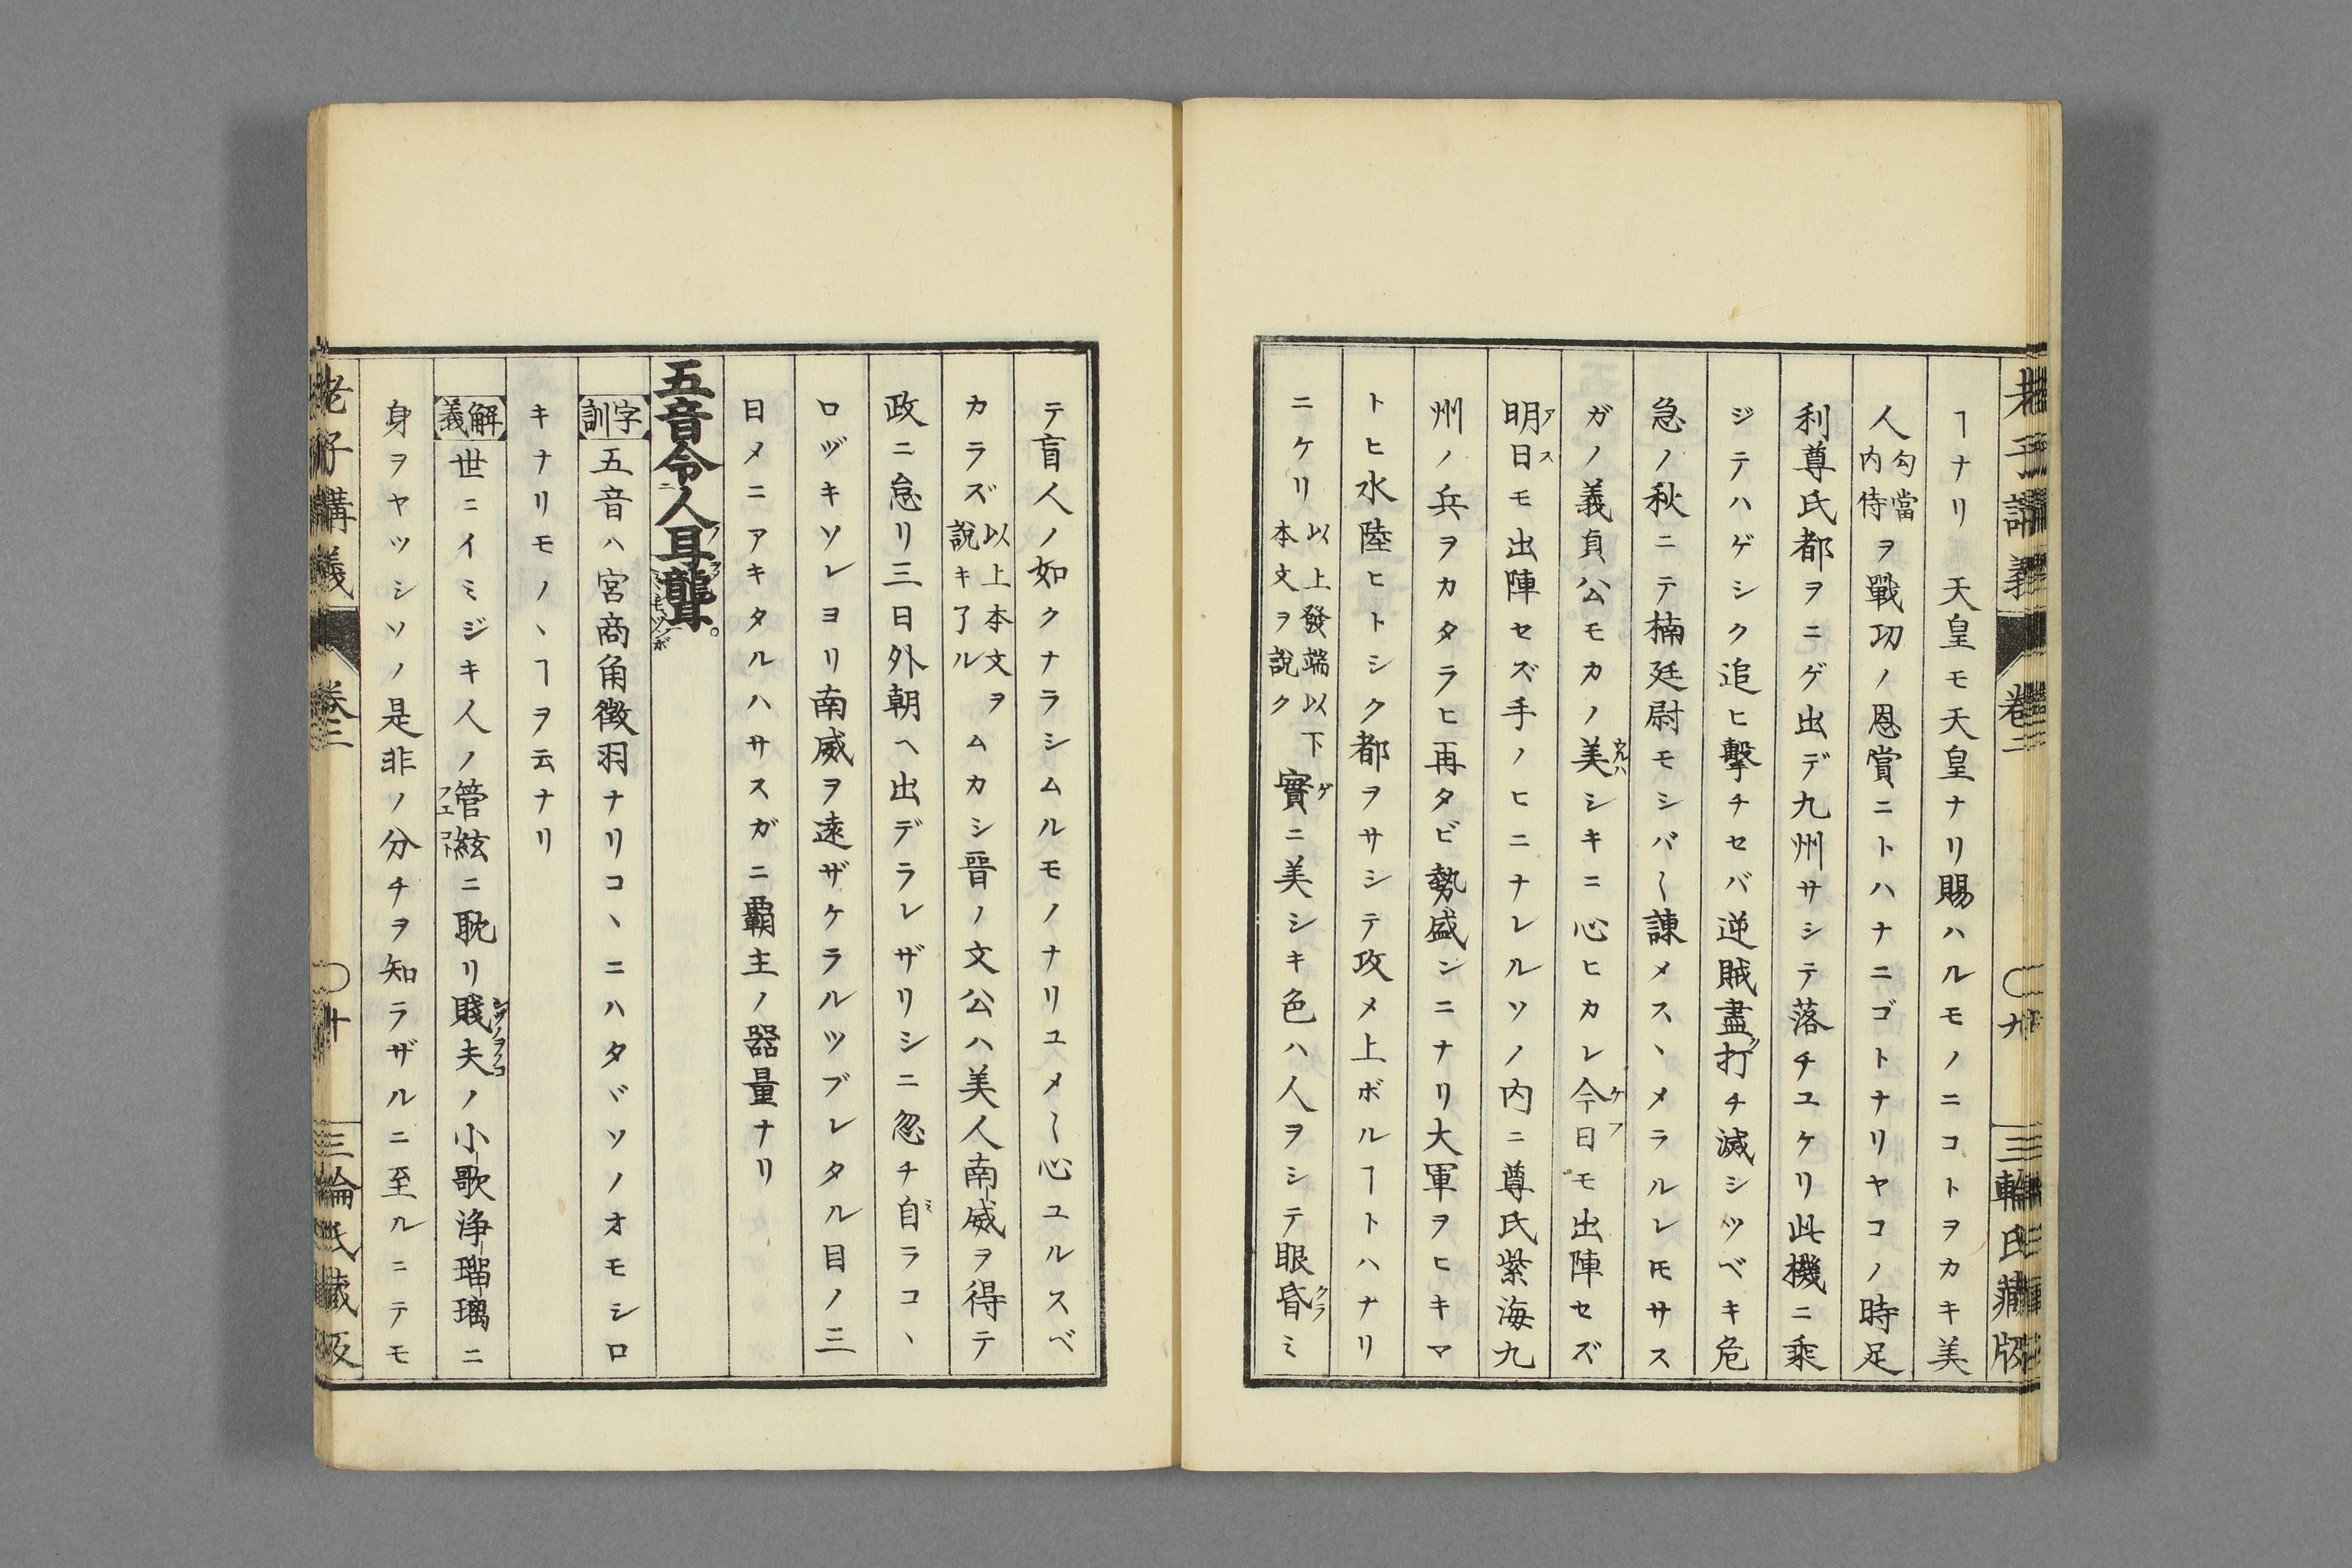 老子講義 卷三 〇九 三輪氏藏版
ヿナリ 天皇モ天皇ナリ賜ハルモノニコトヲカキ美
人勾當内侍ヲ戰功ノ恩賞ニトハナニゴトナリヤコノ時足
利尊氏都ヲニゲ出デ九州サシテ落チユケリ此機ニ乘
ジテハゲシク追ヒ擊チセバ逆賊盡打チ滅シツベキ危
急ノ秋ニテ楠廷尉モシバ〱諫メスヽメラルレㇳモサス
ガノ義貞公モカノ美シキニ心ヒカレ今日モ出陣セズ
明日モ出陣セズ手ノヒニナレルソノ内ニ尊氏紫海九
州ノ兵ヲカタラヒ再タビ勢盛ンニナリ大軍ヲヒキマ
トヒ水陸ヒトシク都ヲサシテ攻メ上ボルヿトハナリ
ニケリ以上發端以下本文ヲ說ク實ニ美シキ色ハ人ヲシテ眼昏ミ
テ盲人ノ如クナラシムルモノナリユメ〱心ユルスベ
カラズ以上本文ヲ說キ了ルムカシ晉ノ文公ハ美人南威ヲ得テ
政ニ怠リ三日外朝ヘ出デラレザリシニ忽チ自ラコヽ
ロヅキソレヨリ南威ヲ遠ザケラルツブレタル目ノ三
日メニアキタルハサスガニ覇主ノ器量ナリ
五音令人耳聾。
字訓 五音ハ宮商角徵羽ナリコヽニハタヾソノオモシロ
キナリモノヽヿヲ云ナリ
解義 世ニイミジキ人ノ管絃ニ耽リ賤夫ノ小歌浄瑠璃ニ
身ヲヤツシソノ是非ノ分チヲ知ラザルニ至ルニテモ
老子講義 卷三 〇十 三輪氏藏版